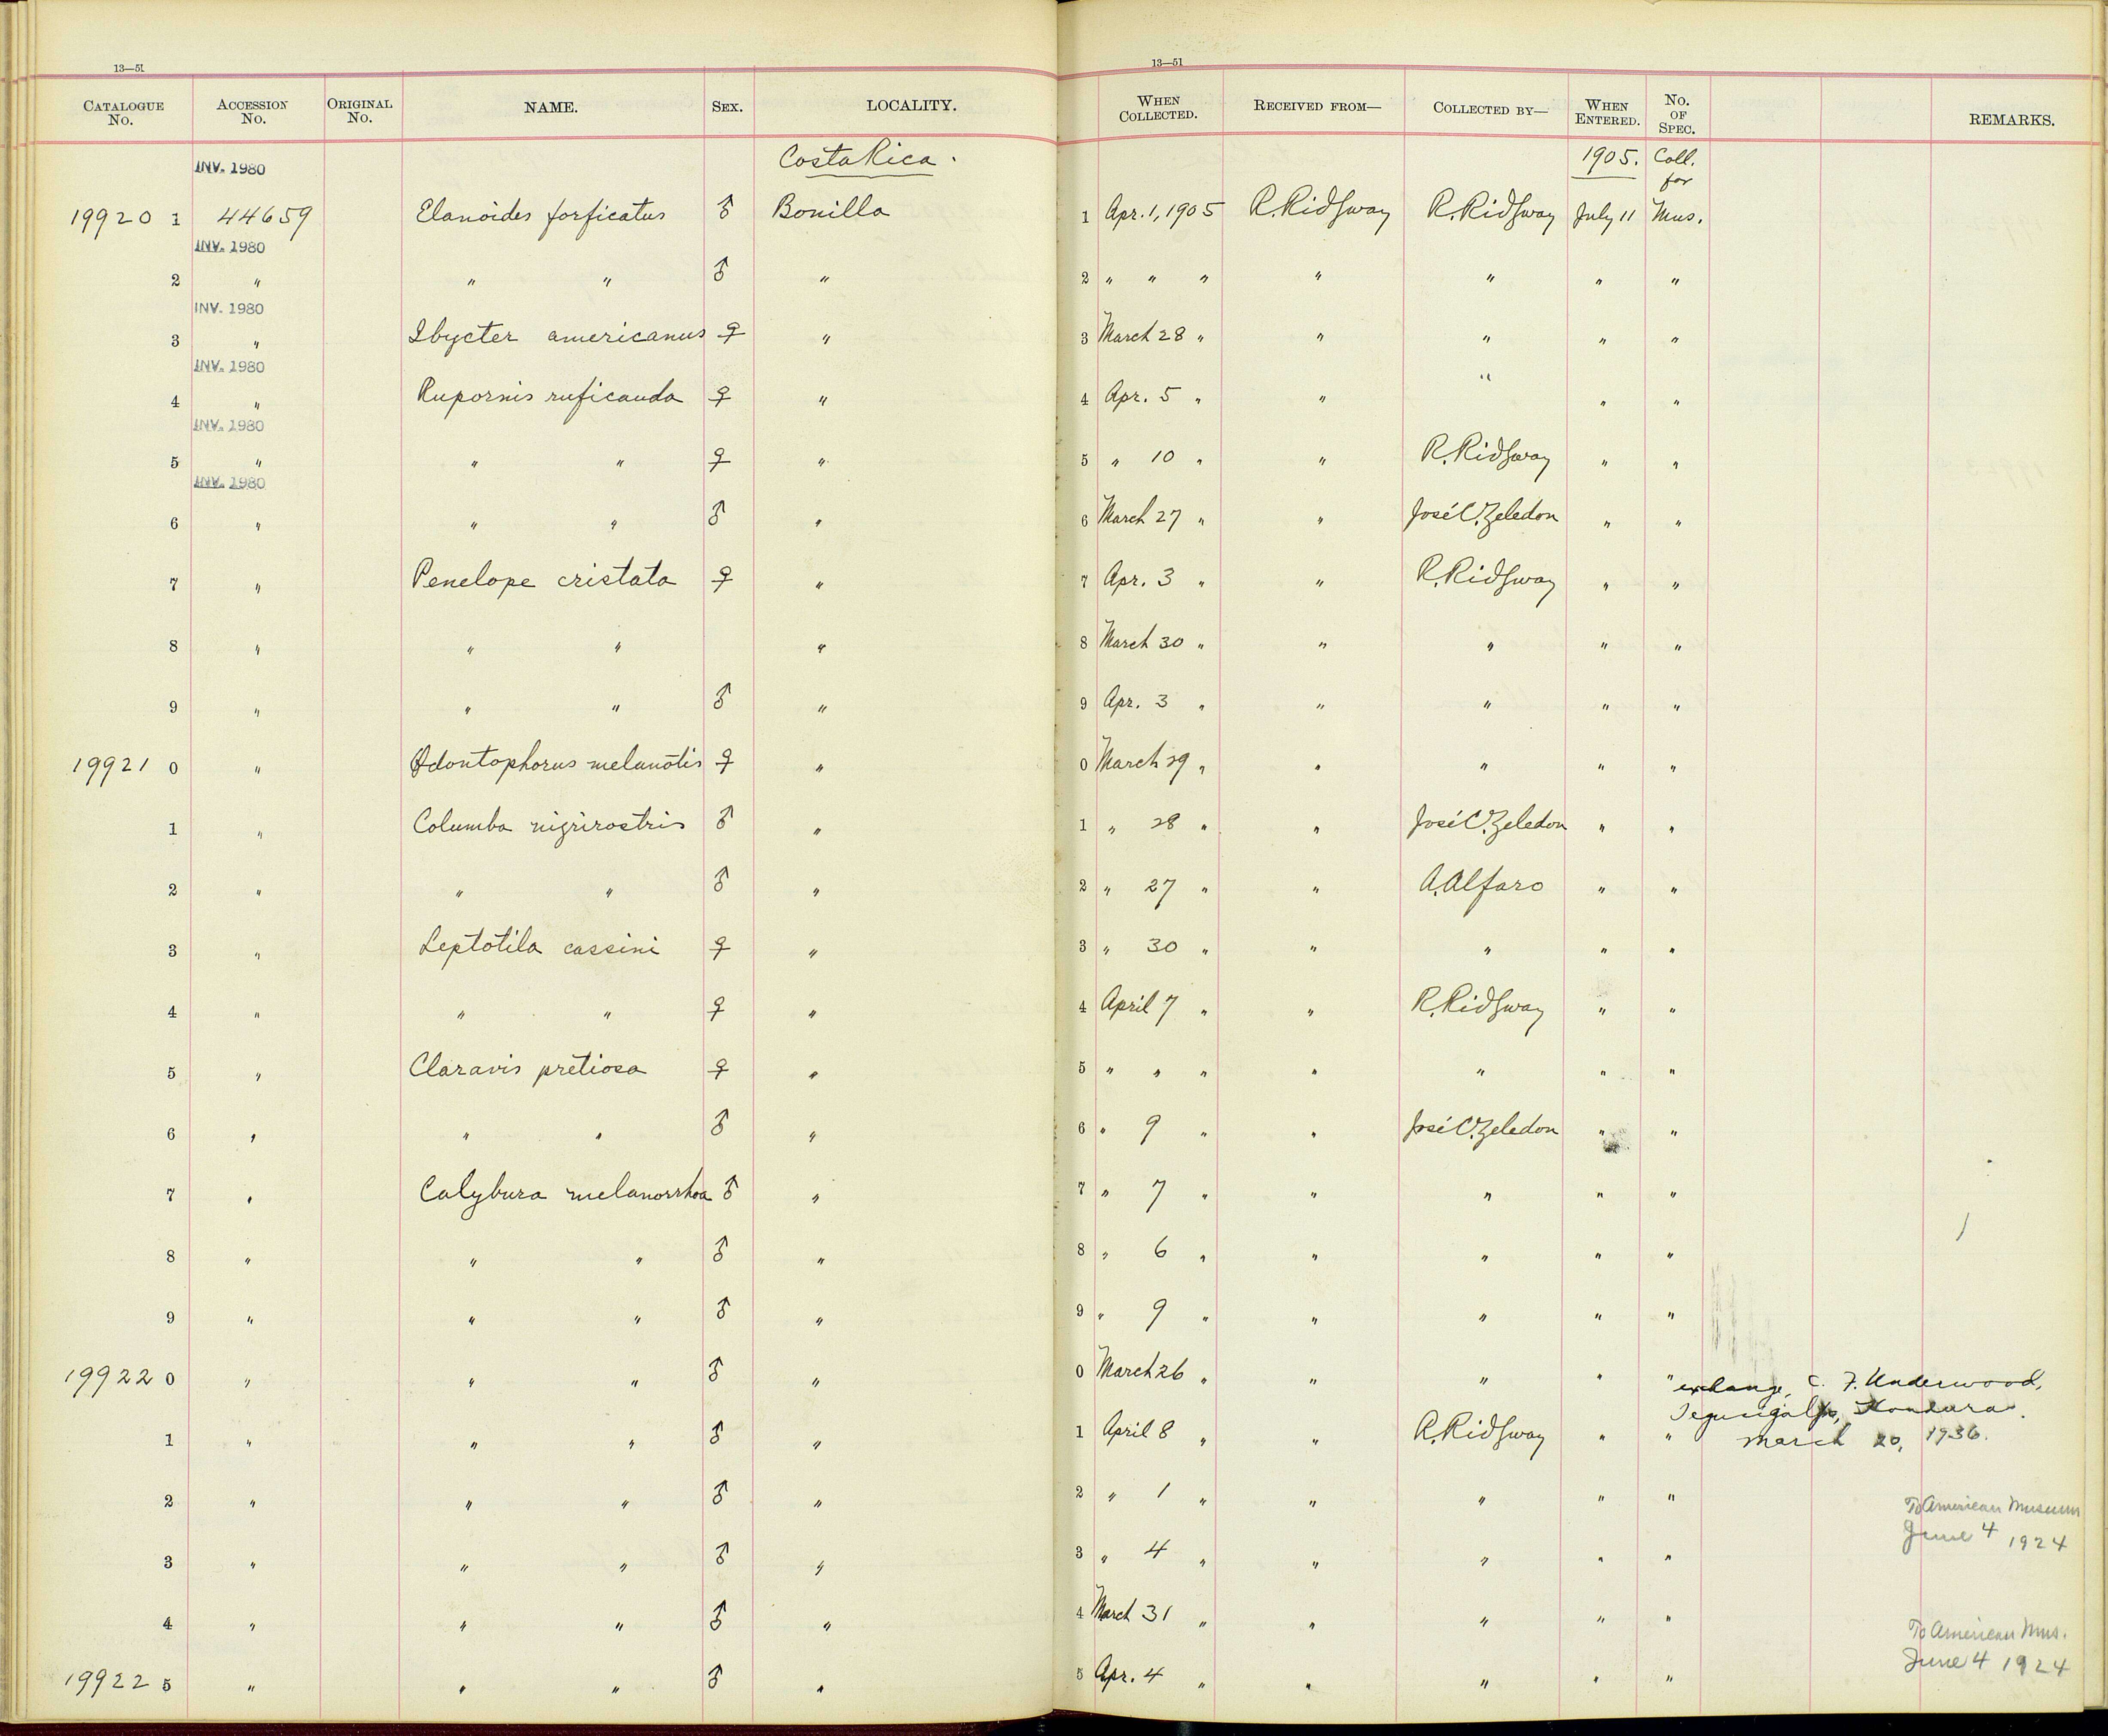 13—51 13—51
CATALOGUE No. ACCESSION No. ORIGINAL No. NAME. SEX. LOCALITY. WHEN COLLECTED. RECEIVED FROM— COLLECTED BY— WHEN ENTERED. No. OF SPEC. REMARKS.
INV. 1980 Costa Rica. 1905. Coll. for
19920 1 44659 Elanoides forficatus ♂ Bonilla 1 Apr. 1, 1905 R. Ridgway R. Ridgway July 11 Mus.
INV. 1980
2 " " " ♂ " 2 " " " " " " "
INV. 1980
3 " Ibycter americanus ♀ " 3 March 28 " " " " "
INV. 1980
4 " Rupornis ruficauda ♀ " 4 Apr. 5 " " " " "
INV. 1980
5 " " " ♀ " 5 " 10 " " R. Ridgway " "
INV. 1980
6 " " " ♂ " 6 March 27 " " José C. Zeledon " "
7 " Penelope cristata ♀ " 7 Apr. 3 " " R. Ridgway " "
8 " " " " 8 March 30 " " " " "
9 " " " ♂ " 9 Apr. 3 " " " " "
19921 0 " Odontophorus melanotis ♀ " 0 March 29 " " " " "
1 " Columba nigrirostris ♂ " 1 " 28 " " José C. Zeledon " "
2 " " " ♂ " 2 " 27 " " A. Alfaro " "
3 " Leptotila cassini ♀ " 3 " 30 " " " " "
4 " " " ♀ " 4 April 7 " " R. Ridgway " "
5 " Claravis pretiosa ♀ " 5 " " " " " " "
6 " " " ♂ " 6 " 9 " " José C. Zeledon " "
7 " Calybura melanorrhoa ♂ " 7 " 7 " " " " "
8 " " " ♂ " 8 " 6 " " " " "
9 " " " ♂ " 9 " 9 " " " " "
19922 0 " " " ♂ " 0 March 26 " " " " " exchange, C. F. Underwood,
Tegucigalpa, Honduras.
1 " " " ♂ " 1 April 8 " " R. Ridgway " " March 20, 1936.
2 " " " ♂ " 2 " 1 " " " " " To American Museum
June 4 1924
3 " " " ♂ " 3 " 4 " " " " "
4 " " " ♂ " 4 March 31 " " " " " To American Mus.
June 4 1924
19922 5 " " " ♂ " 5 Apr. 4 " " " " "